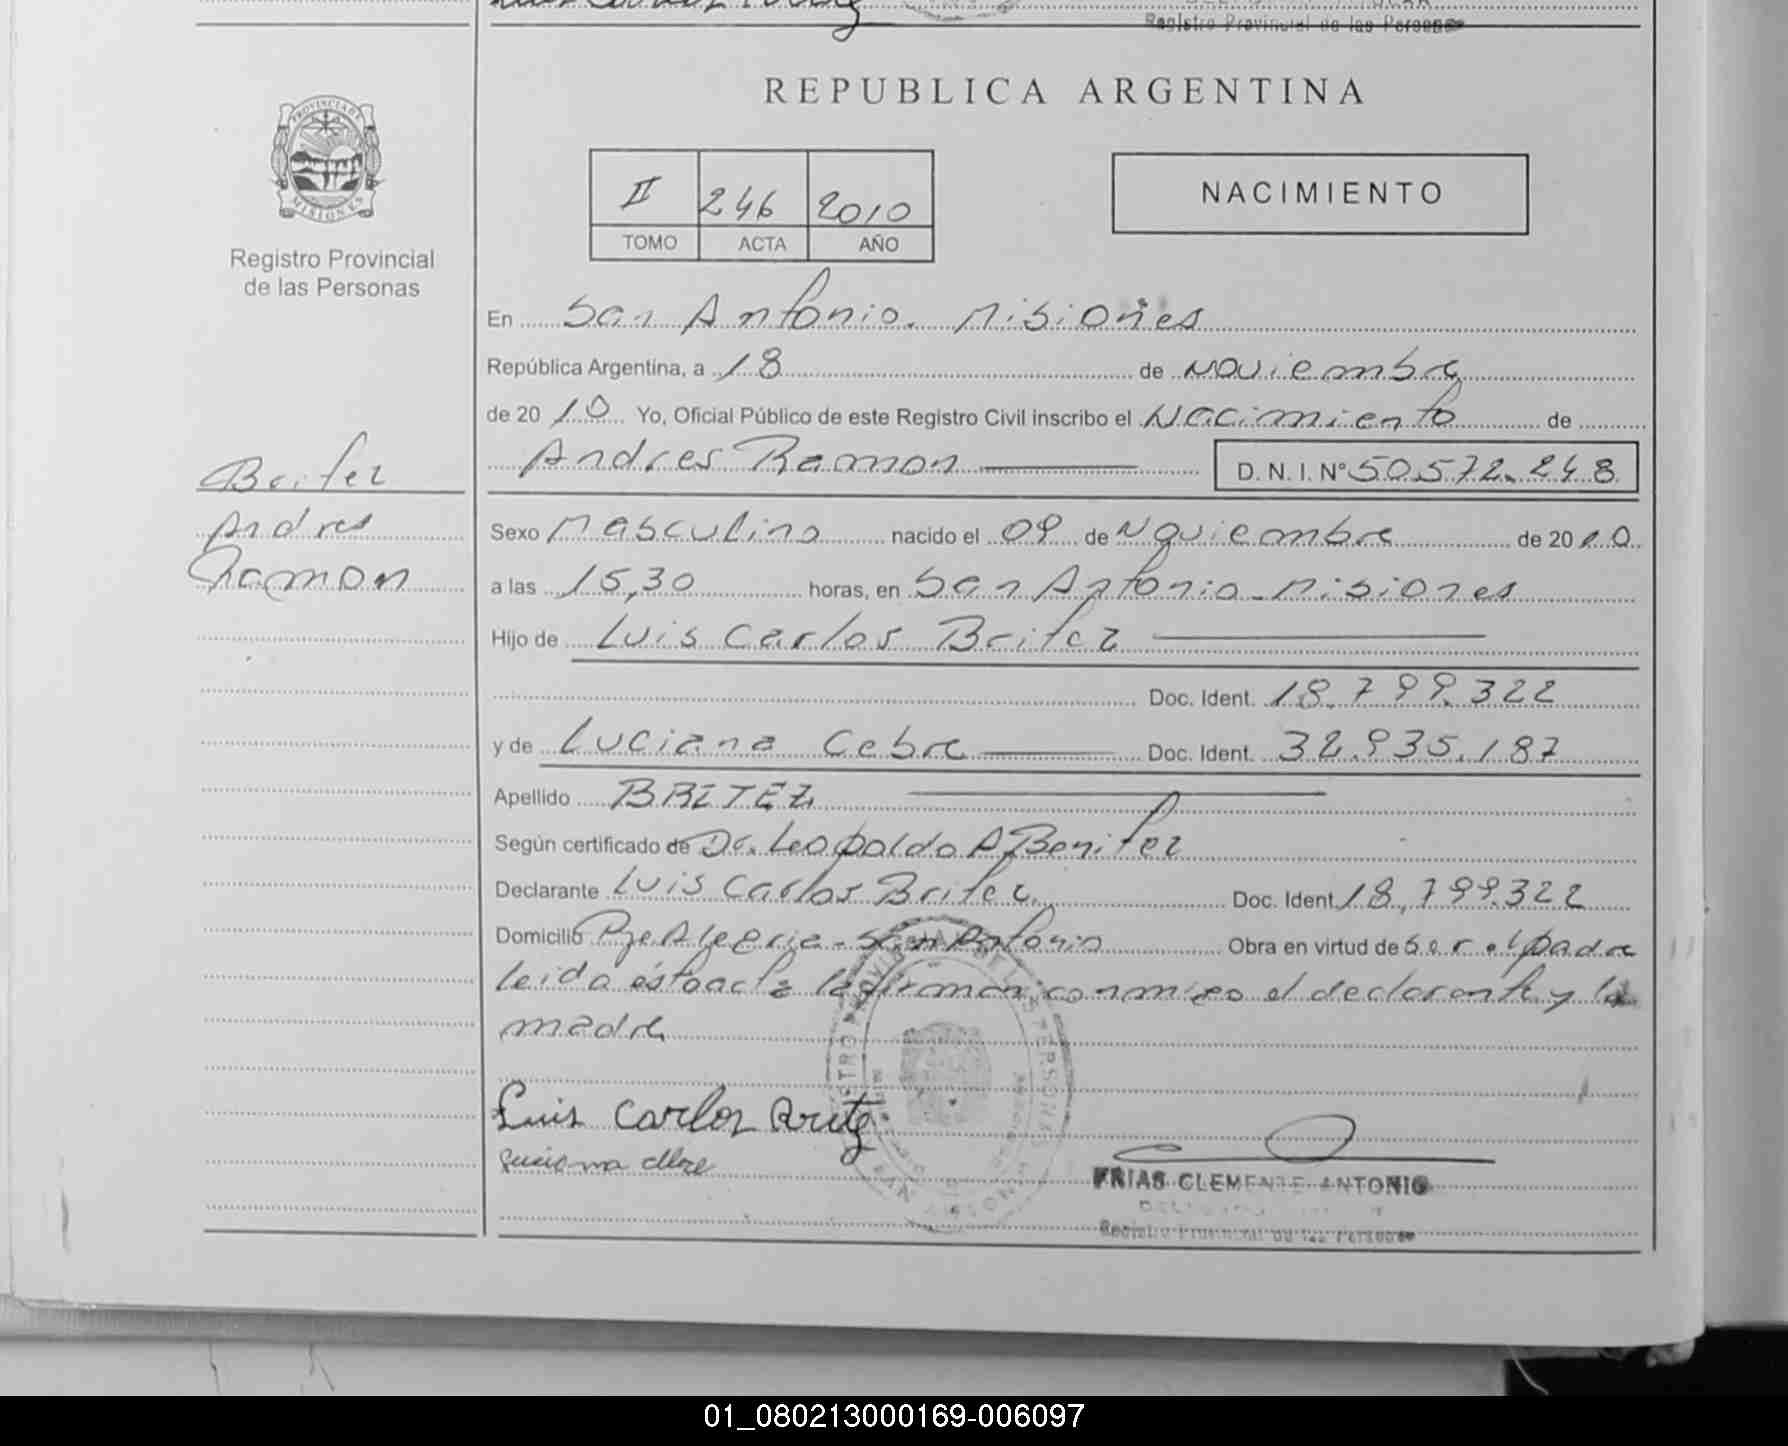 Registro Provincial de las Personas
REPUBLICA ARGENTINA
PROVINCIA DE
MISIONES
Registro Provincial
de las Personas
II 246 2010
TOMO ACTA AÑO
NACIMIENTO
En San Antonio. Misiones
República Argentina, a 18 de Noviembre
de 20 10 Yo, Oficial Público de este Registro Civil inscribo el Nacimiento de
Andres Ramon D. N. I. N° 50.572.248
Britez
Andres
Ramon
Sexo Masculino nacido el 09 de Noviembre de 20 10
a las 15,30 horas, en San Antonio - Misiones
Hijo de Luis Carlos Britez
Doc. Ident. 18.799.322
y de Luciana Cebre Doc. Ident. 32.935.187
Apellido BRITEZ
Según certificado de Dr. Leopoldo A Benitez
Declarante Luis Carlos Britez Doc. Ident. 18,799.322
Domicilio Pje Alegria - San Antonio Obra en virtud de ser el padre
leida ésta acta la firman conmigo el declarante y la
madre
Luis Carlos Britez
FRIAS CLEMENTE ANTONIO
Registro Provincial de las Personas
01_080213000169-006097